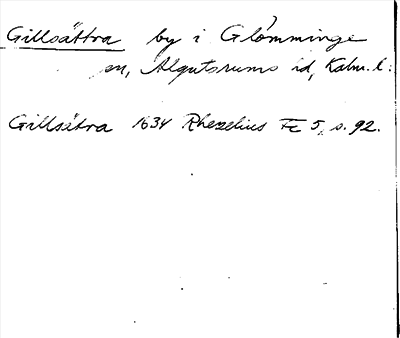 Gillsättra by i Glömminge
sn, Algutsrums hd, Kalm. l:
Gillsätra 1634 Rhezelius Fc 5, s. 92.